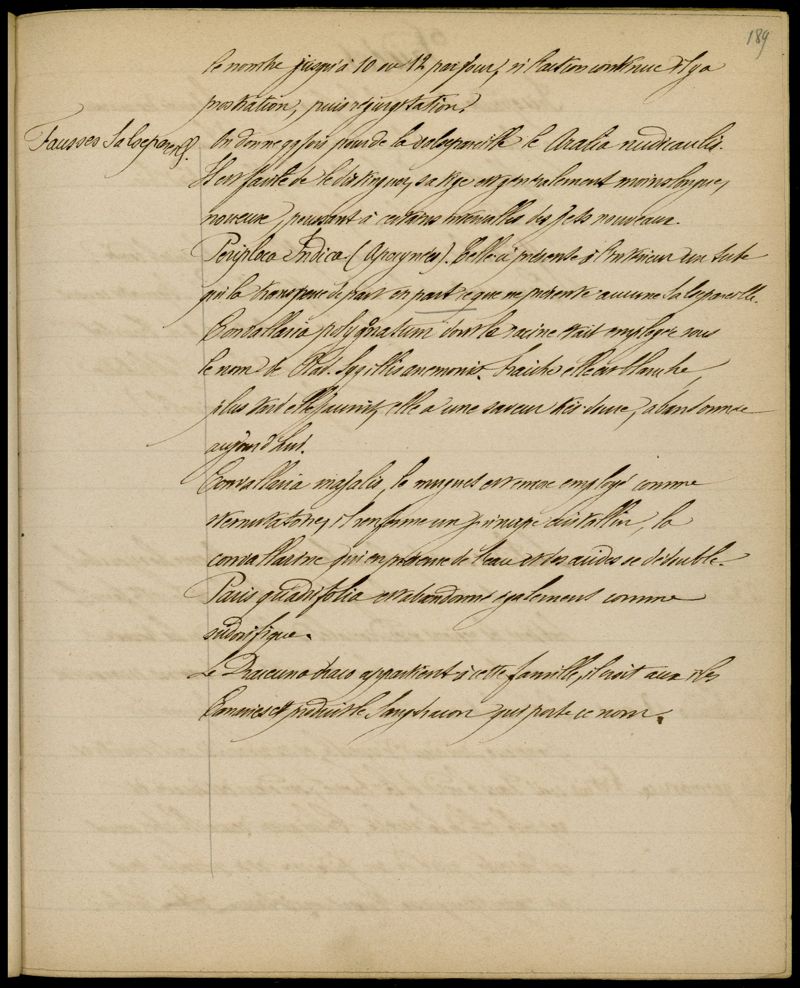 189
le nombre jusqu'à 10 ou 12 par jour, si l'action continue il y a
prostration, puis régurgitation.
Fausses Salsepareill.
On donne qqfois pour de la salsepareille le Aralia nudicaulis.
Il est facile de le distinguer, sa tige est généralement moins longue,
noueuse, poussant à certains intervalles des jets nouveaux.
Periploca Indica (Apocynées). Celle-ci présente à l'intérieur un tube
qui la transperce de part en part ce que ne présente aucune Salsepareille.
Convallaria polygonatum dont la racine était employée sous
le nom de Rad. Sigillis anemonis. Fraiche elle est blanche,
plus tard elle jaunit, elle a une saveur très dure, abandonnée
aujourd'hui.
Convallaria majalis, le muguet est encore employé comme
sternutatoire, il renferme un principe cristallin, la
convallarine qui en présence de l'eau et des acides se dédouble.
Paris quadrifolia est abandonné également comme
sudorifique.
Le Dracuno draco appartient à cette famille, il croit aux iles
Canaries et produit le Sangdracon qui porte ce nom.